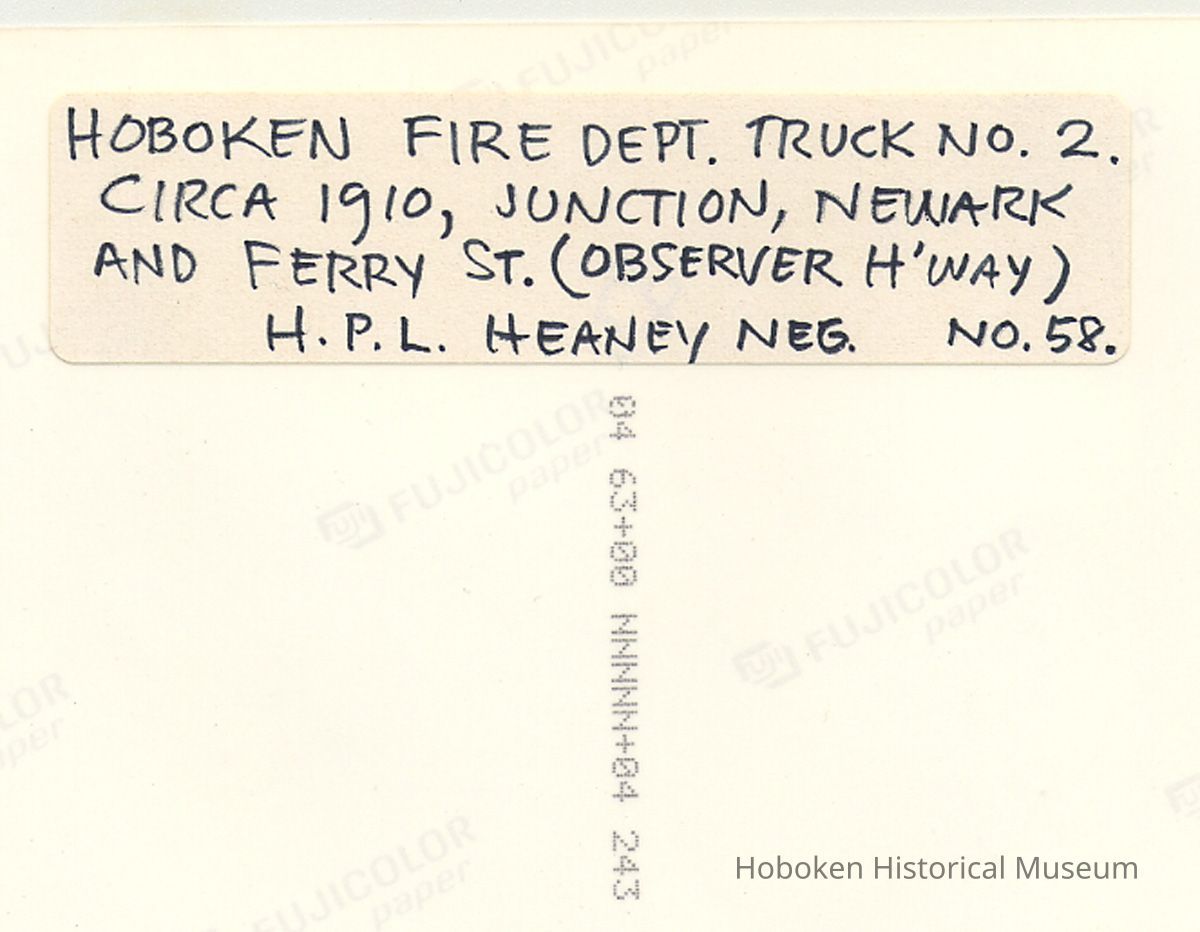 HOBOKEN FIRE DEPT. TRUCK NO. 2.
CIRCA 1910, JUNCTION, NEWARK
AND FERRY ST. (OBSERVER H'WAY)
H.P.L. HEANEY NEG. NO. 58.
04 63+00 NNNNN+04 243
FUJICOLOR
paper
FUJICOLOR
paper
FUJI FUJICOLOR
paper
FUJI FUJICOLOR
paper
FUJICOLOR
paper
Hoboken Historical Museum